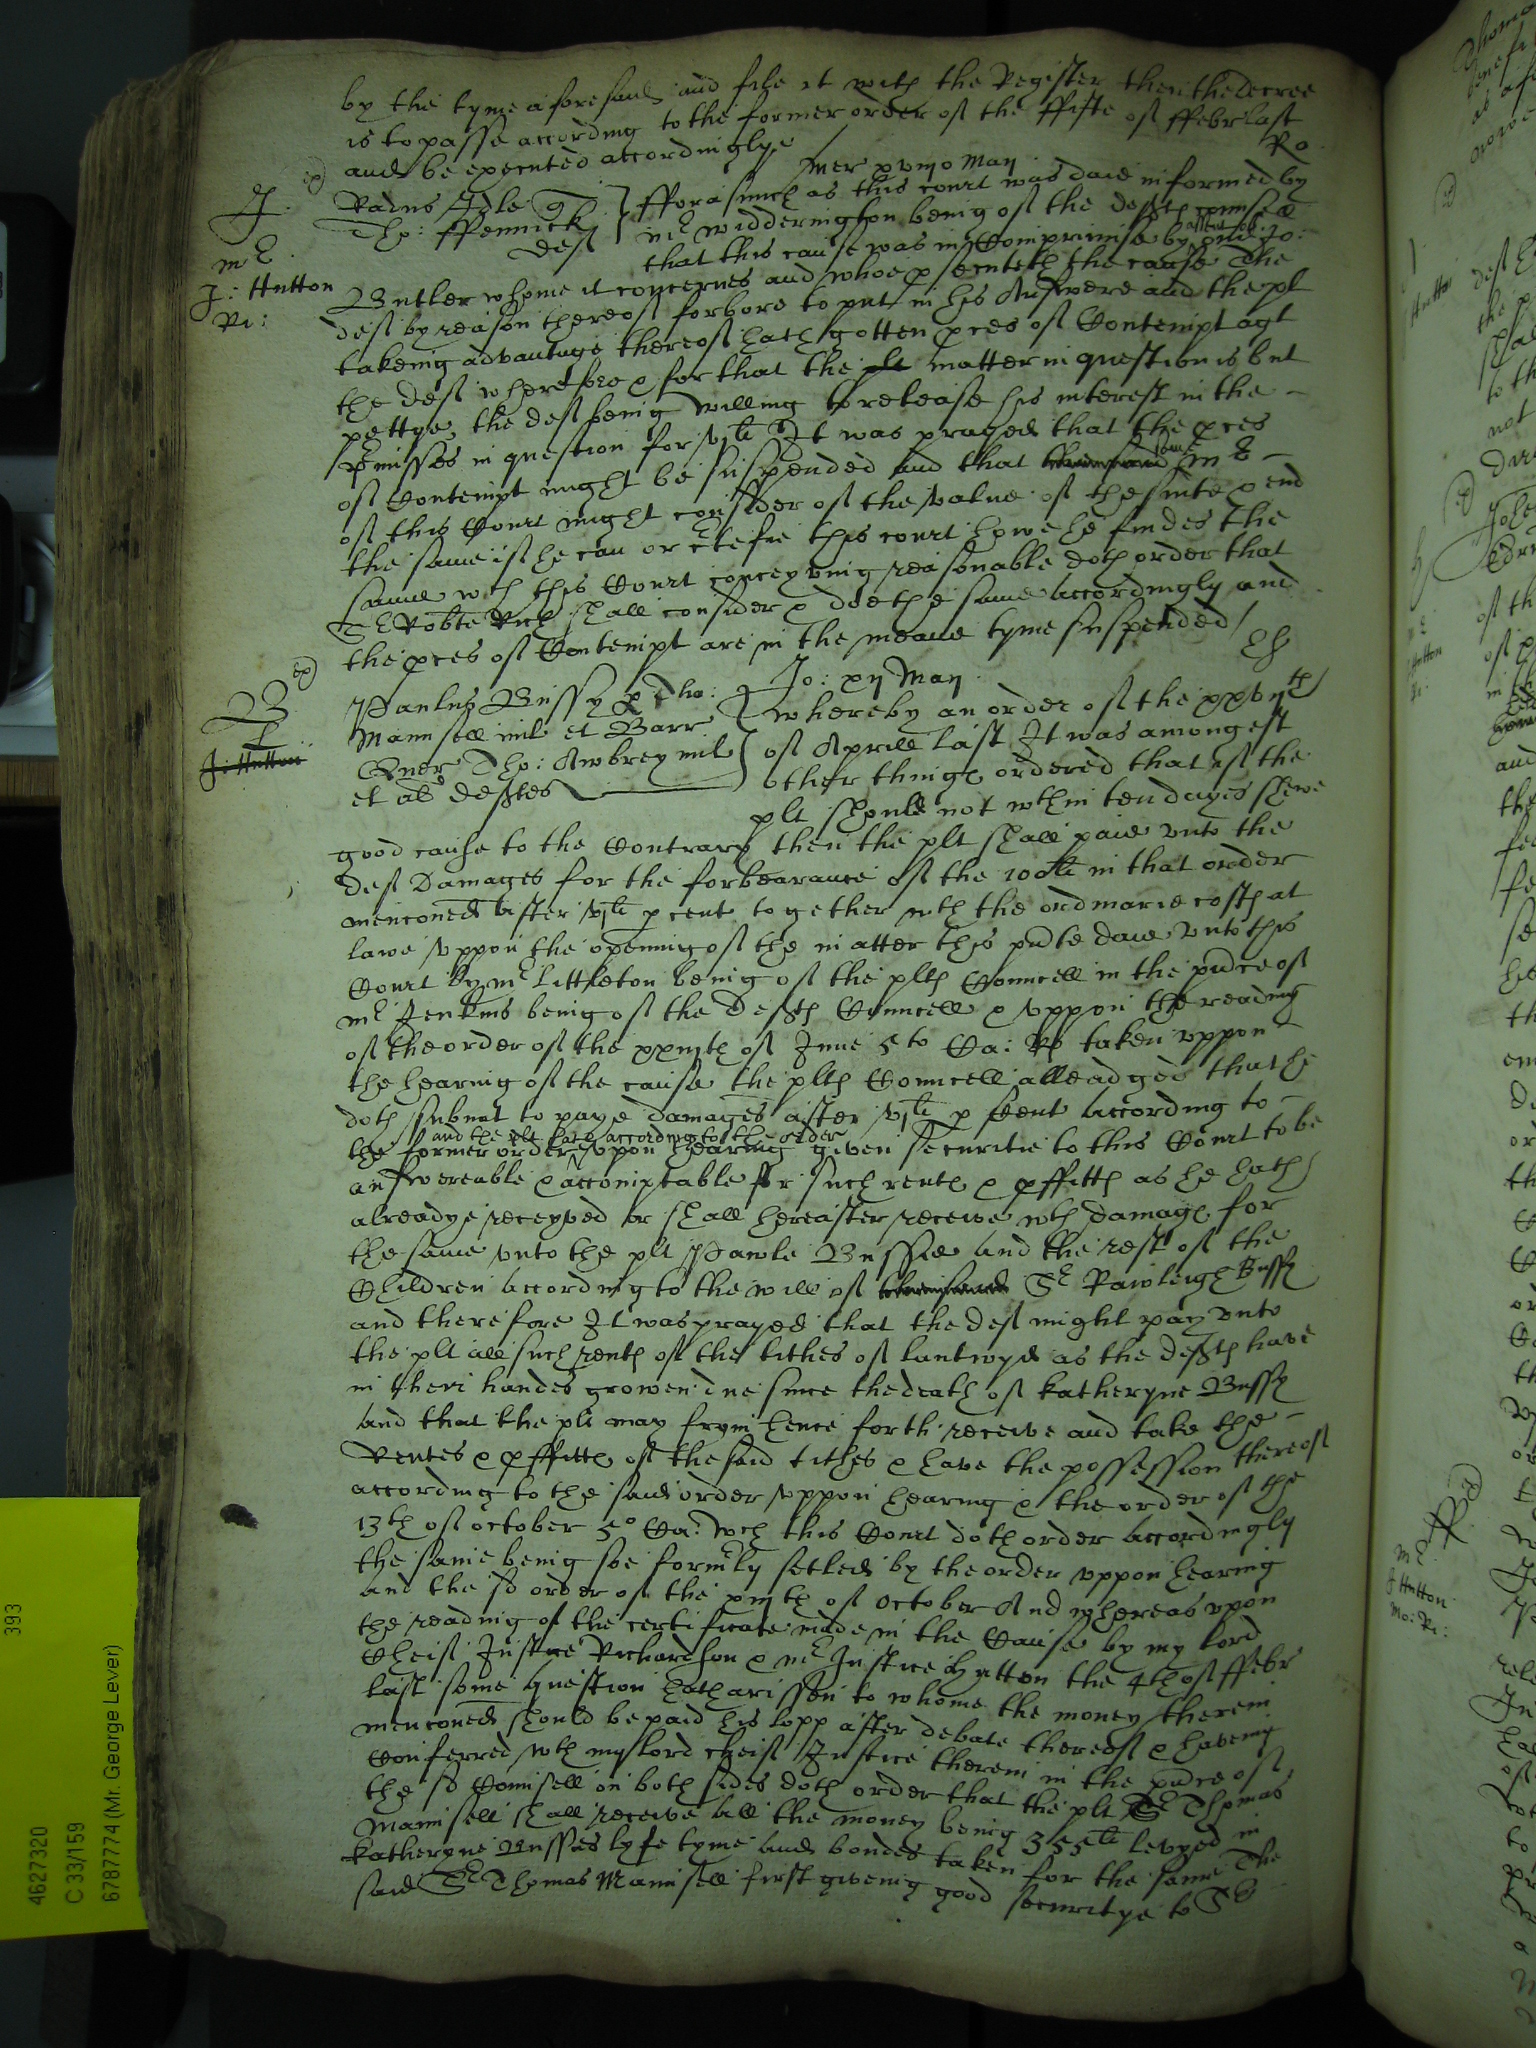 by the tyme aforesaid and file it with the Register then the decree
is to passe according to the former order of the ffifte of ffebr last
and be executed accordinglye
Ro
Mer xviijo Maij
A
Mr
J: Hutton
Ri:
Radus Adle q
Tho: ffennick
deft
fforasmuch as this court was daie informed by
mr widdrington being of the defts counsell
that this cause was in Comprimise by one Jo:
Butler whome it concernes and whoe psecuteth the cause The
deft by reason thereof forbore to put in his Answere and the pl
takeing advantage thereof hath gotten pces of Contempt agt
the deft wherefore & for that the plt matter in question is but
pettye, the deft being willing to release his interest in the
pmisses in question for vjli It was prayed that the pces
of Contempt might be suspended and that some Mr
of this Court might consider of the value of the suite & end
the same if he can or ctefie this court howe he findes the
same wch this Court conceyving reasonable doth order that
Sr Robte Rich shall consider & doe the same accordingly and
the pces of Contempt are in the meane tyme suspended
Jo: xij Maij
B
J: Hutton
Paulus Bussy & Tho:
Mannsell mil et Barr
Quer Tho: Awbrey mil
et als deftes
whereby an order of the xxvijth
of Aprill last It was amongest
other things ordered that if the
plt should not wthin ten dayes shewe
good cause to the Contrary then the plt shall paie vnto the
deft Damages for the forbearance of the 100li in that order
menconed after vjli p cent together wth the ordinarie costs at
lawe vppon the opening of the matter this pnte daie vnto this
Court by mr Littleton being of the plts Councell in the pnce of
mr Jenkins being of the Defts Councell & vppon the reading
of the order of the xxiijth of June 5to Ca: Rs taken vppon
the hearing of the cause the plts Councell alleadged that he
doth submit to paye damages after vjli p Cent according to
the former order vpon hearing and the plt hath according to the order given securitie to this Court to be
answereable & accomptable for such rents & pffitts as he hath
alreadye receyved or shall hereafter receive wth damage for
the same vnto the plt Pawle Bussie and the rest of the
Children according to the will of Sr Rawleigh Bussy
and therefore It was prayed that the deft might pay vnto
the plt all such rents of the tithes of lantwyd as the defts have
in their handes growen due since the death of Katheryne Bussy
and that the plt may from hence forth receive and take the
Rentes & pffitts of the said tithes & have the possession thereof
according to the said order vppon hearing & the order of the
13th of october 5o Ca: wch this Court doth order accordingly
the same being soe formrly setled by the order vppon hearing
and the sd order of the xiijth of October And whereas vpon
the reading of the certificate made in the Cause by my lord
Cheif Justice Richardson & mr Justice Hutton the 4th of ffebr
last some question hath arissen to whome the money therein
menconed should be paid his lopp after debate thereof & haveing
Conferred wth my lord cheif Justice therein in the pnce of
the sd Counsell on both sides doth order that the plt Sr Thomas
Mannsell shall receive all the money being 355li levyed in
Katheryne Busses lyfe tyme and bondes taken for the same The
said Sr Thomas Mannsell first giveing good securitye to Sr
4627320
C 33/159
6787774 (Mr. George Lever)
393